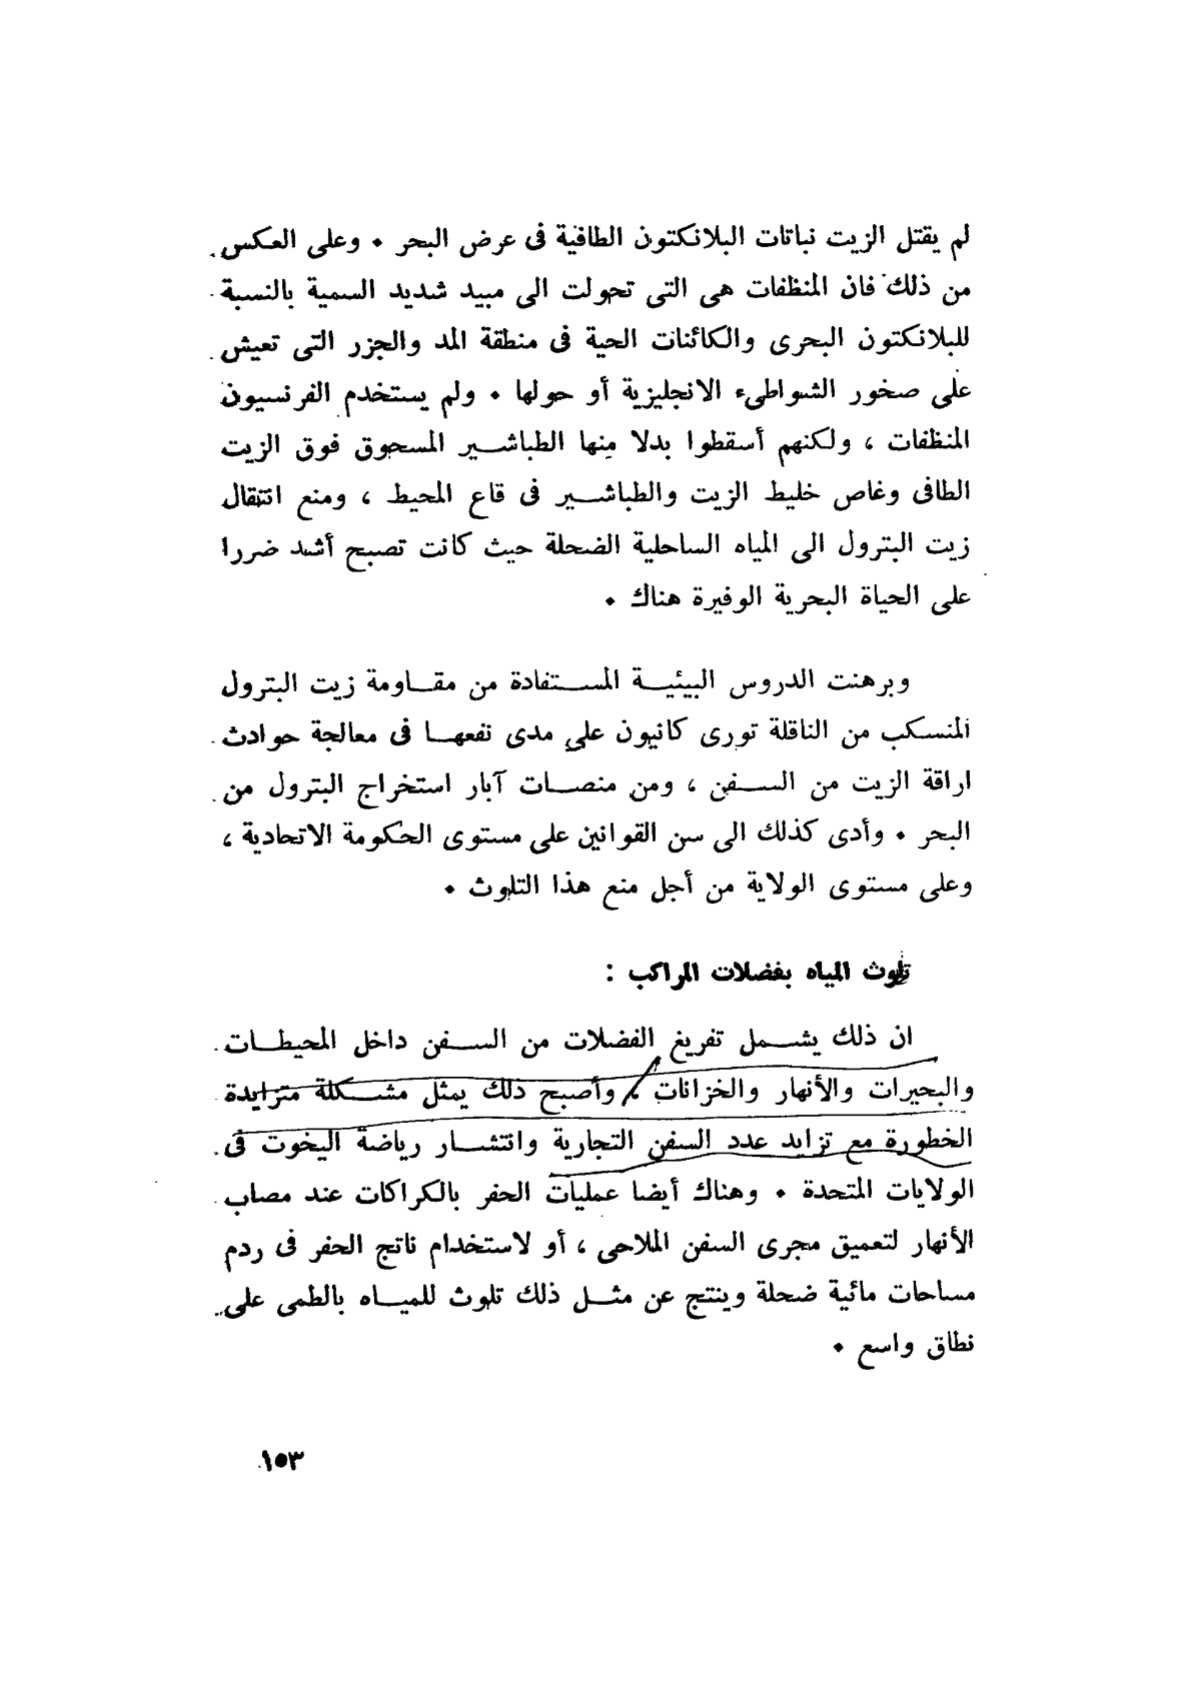 لم يقتل الزيت نباتات البلانكتون الطافية فى عرض البحر • وعلى العكس
من ذلك فان المنظفات هى التى تحولت الى مبيد شديد السمية بالنسبة
للبلانكتون البحرى والكائنات الحية فى منطقة المد والجزر التى تعيش
على صخور الشواطىء الانجليزية أو حولها • ولم يستخدم الفرنسيون
المنظفات ، ولكنهم أسقطوا بدلا منها الطباشير المسحوق فوق الزيت
الطافى وغاص خليط الزيت والطباشير فى قاع المحيط ، ومنع انتقال
زيت البترول الى المياه الساحلية الضحلة حيث كانت تصبح أشد ضررا
على الحياة البحرية الوفيرة هناك •
وبرهنت الدروس البيئية المستفادة من مقاومة زيت البترول
المنسكب من الناقلة تورى كانيون على مدى نفعها فى معالجة حوادث
اراقة الزيت من السفن ، ومن منصات آبار استخراج البترول من
البحر • وأدى كذلك الى سن القوانين على مستوى الحكومة الاتحادية ،
وعلى مستوى الولاية من أجل منع هذا التلوث •
تلوث المياه بفضلات المراكب :
ان ذلك يشمل تفريغ الفضلات من السفن داخل المحيطات
والبحيرات والأنهار والخزانات ، وأصبح ذلك يمثل مشكلة متزايدة
الخطورة مع تزايد عدد السفن التجارية وانتشار رياضة اليخوت فى
الولايات المتحدة • وهناك أيضا عمليات الحفر بالكراكات عند مصاب
الأنهار لتعميق مجرى السفن الملاحى ، أو لاستخدام ناتج الحفر فى ردم
مساحات مائية ضحلة وينتج عن مثل ذلك تلوث للمياه بالطمى على
نطاق واسع •
١٥٣